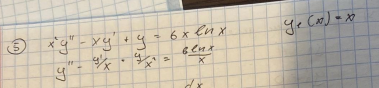 ⑤ x²y'' - xy' + y = 6x ln x    y₁(x) = x
y'' - y'/x - y/x² = 6lnx/x
dx